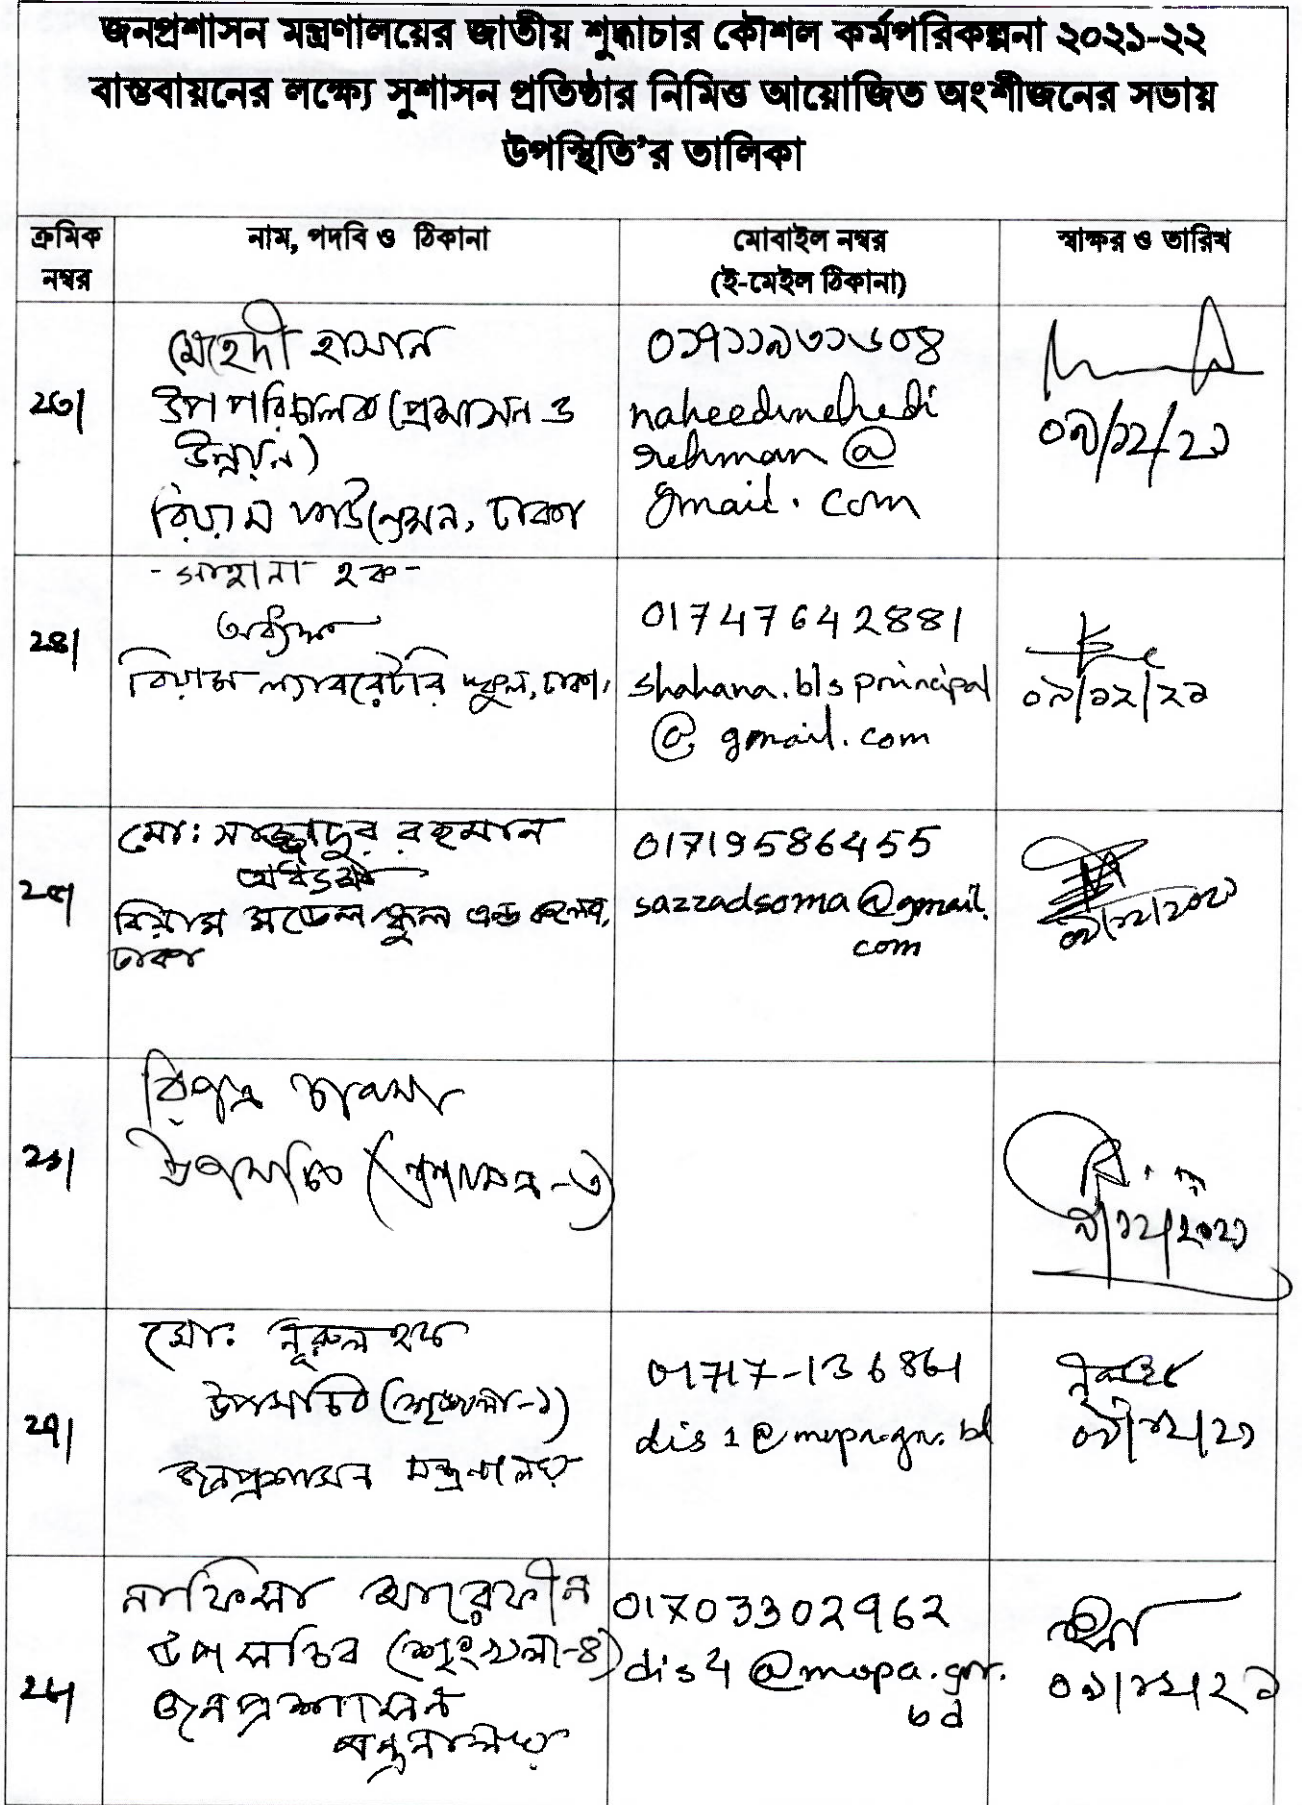 জনপ্রশাসন মন্ত্রণালয়ের জাতীয় শুদ্ধাচার কৌশল কর্মপরিকল্পনা ২০২১-২২
বাস্তবায়নের লক্ষ্যে সুশাসন প্রতিষ্ঠার নিমিত্ত আয়োজিত অংশীজনের সভায়
উপস্থিতি'র তালিকা
ক্রমিক নম্বর
নাম, পদবি ও ঠিকানা
মোবাইল নম্বর
(ই-মেইল ঠিকানা)
স্বাক্ষর ও তারিখ
২৩|
মেহেদী হাসান
উপপরিচালক (প্রশাসন ও
উন্নয়ন)
বিয়াম ফাউন্ডেশন, ঢাকা
০১৭১১৯৩১৬০৪
naheedmehedi
rehman@
gmail.com
০৯/১২/২১
২৪|
- সাহানা হক -
অধ্যক্ষ
বিয়াম ল্যাবরেটরি স্কুল, ঢাকা,
01747642881
shahana.blsprincipal
@gmail.com
০৯/১২/২১
২৫|
মো: সাজ্জাদুর রহমান
বিয়াম মডেল স্কুল এন্ড কলেজ,
ঢাকা
01719586455
sazzadsoma@gmail.
com
০৯/১২/২০২১
২৬|
উপসচিব (প্রশাসন-৩)
৯/১২/২০২১
২৭|
মো: নূরুল হক
উপসচিব (শৃঙ্খলা-১)
জনপ্রশাসন মন্ত্রণালয়
01717-136861
dis1@mopa.gov.bd
০৯/১২/২১
২৮|
নাফিসা আরেফীন
উপসচিব (শৃংখলা-৪)
জনপ্রশাসন
মন্ত্রনালয়
01703302962
dis4@mopa.gov.
bd
০৯/১২/২১